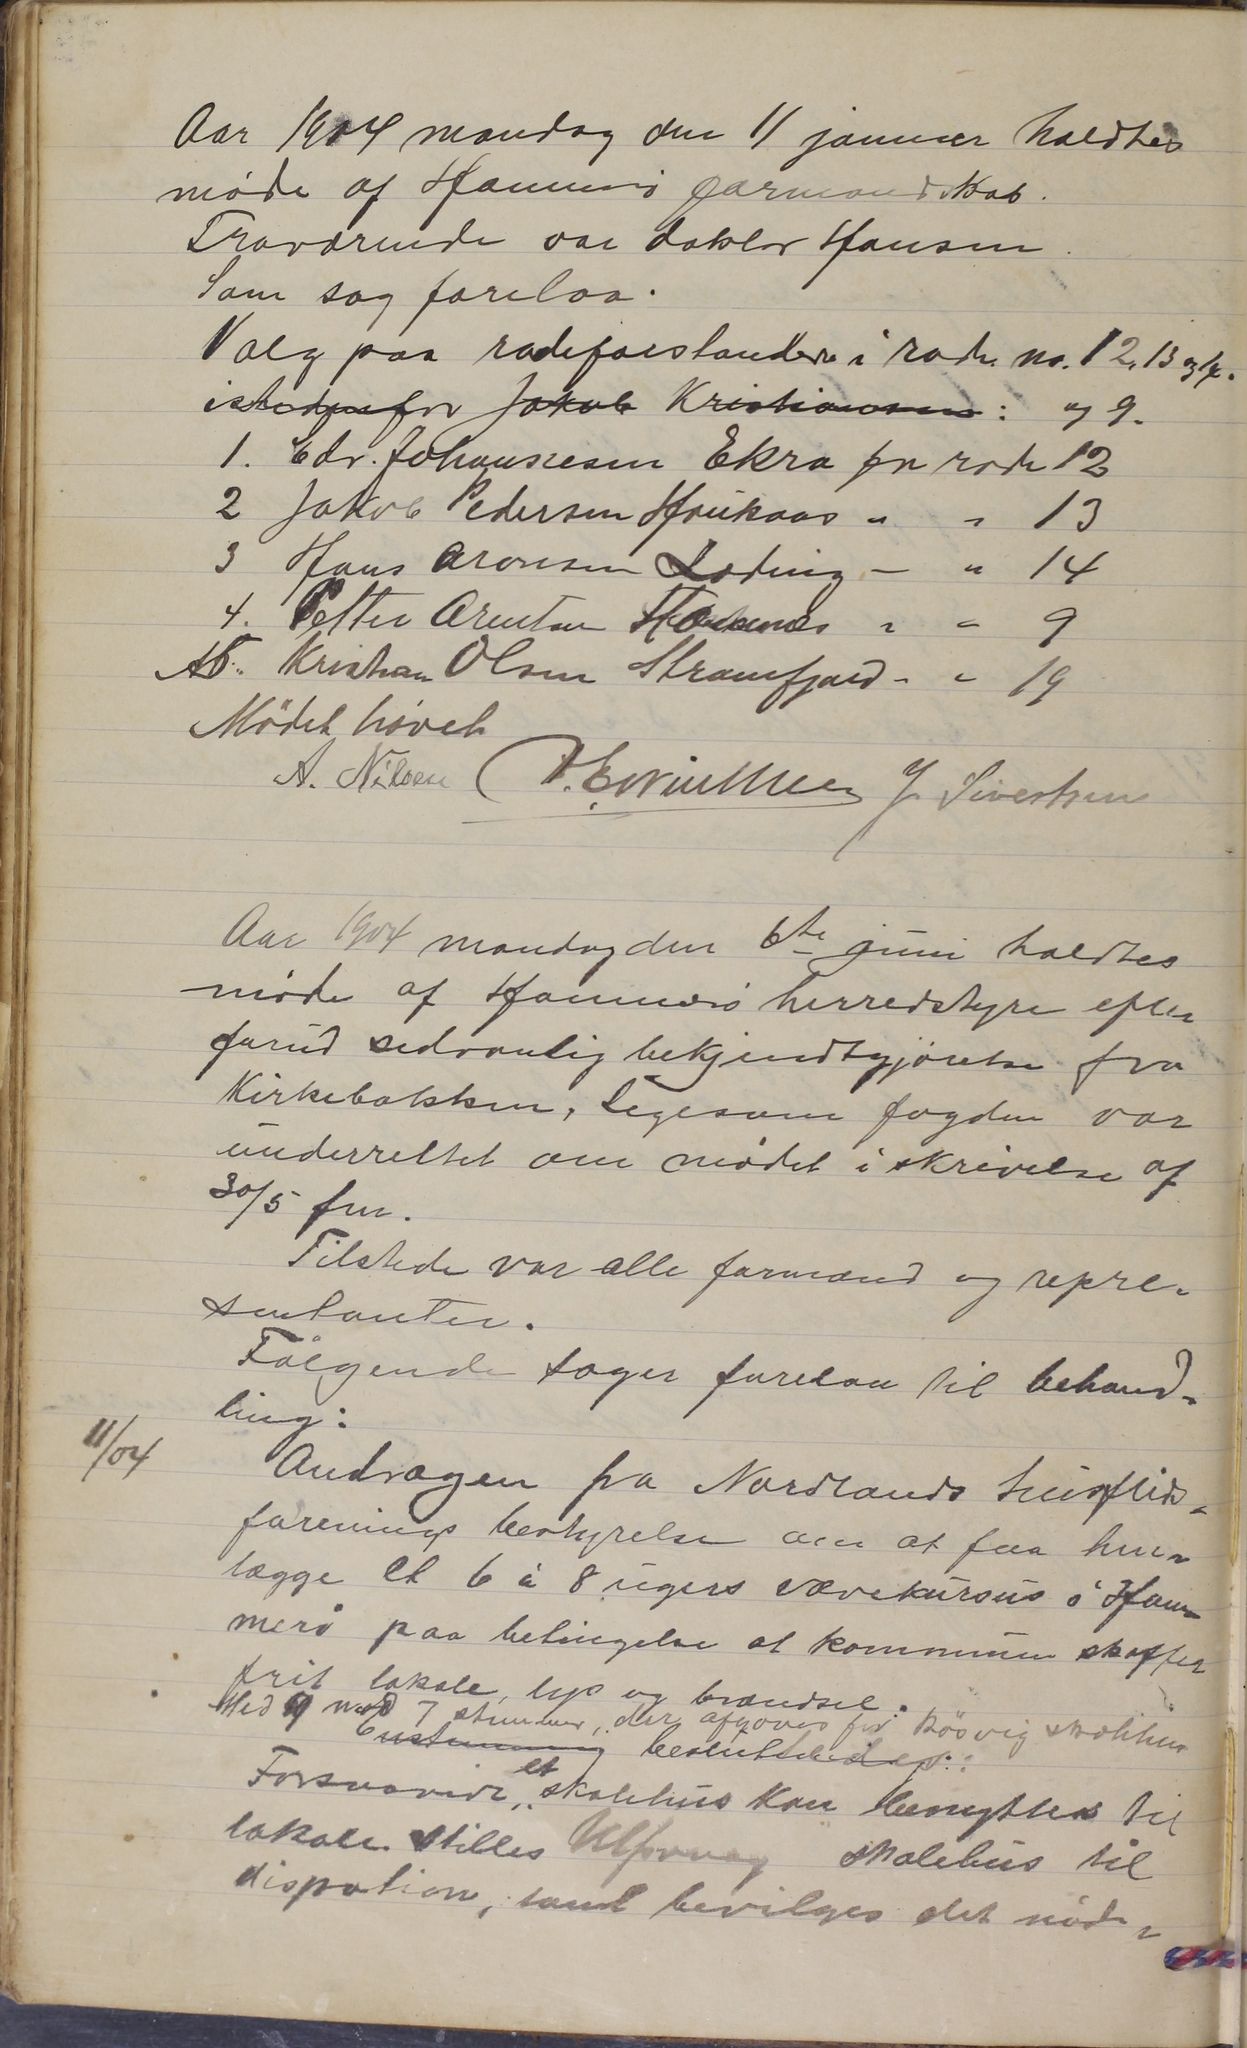 Aar 1904 mandag den 11 januar holdtes
møde af Hammerö formandskab.
Fraværende var doktor Hansen.
Som sag forelaa.
Valg paa rodeforstandere i rode no. 12, 13 og 14.
istedenfor Jakob Kristiansen: og 9.
1. Edv. Johannesen Ekra for rode 12
2 Jakob Pedersen Haukaas " " 13
3 Hans Aronsen Løding - " 14
4. Petter Arntsen " " 9
Kristian Olsen Strømfjord - " 19
Mödet hævet
A. Nilsen J. Sivertsen
Aar 1904 mandag den 6te juni holdtes
møde af Hammerö herredstyre efter
forud sedvanlig bekjendtgjörelse fra
Kirkebakken, ligesom fogden var
underrettet om mödet i skrivelse af
30/5 fm.
Tilstede var alle formænd og repre-
sentanter.
Fölgende sager forelaa til behand-
ling:
11/04
Andragen fra Nordlands husflids-
forenings bestyrelse om at faa hen-
lægge et 6 à 8 ugers vævekursus i Ham-
merö paa betingelse at kommunen skaffer
frit lokale, lys og brændsel.
Med 9 mod 7 stemmer, der afgaves for skolehus
Enstemmig besluttedes:
Forsaavidt et skolehus kan benyttes til
lokale stilles skolehus til
dispotion, samt bevilges det nød-